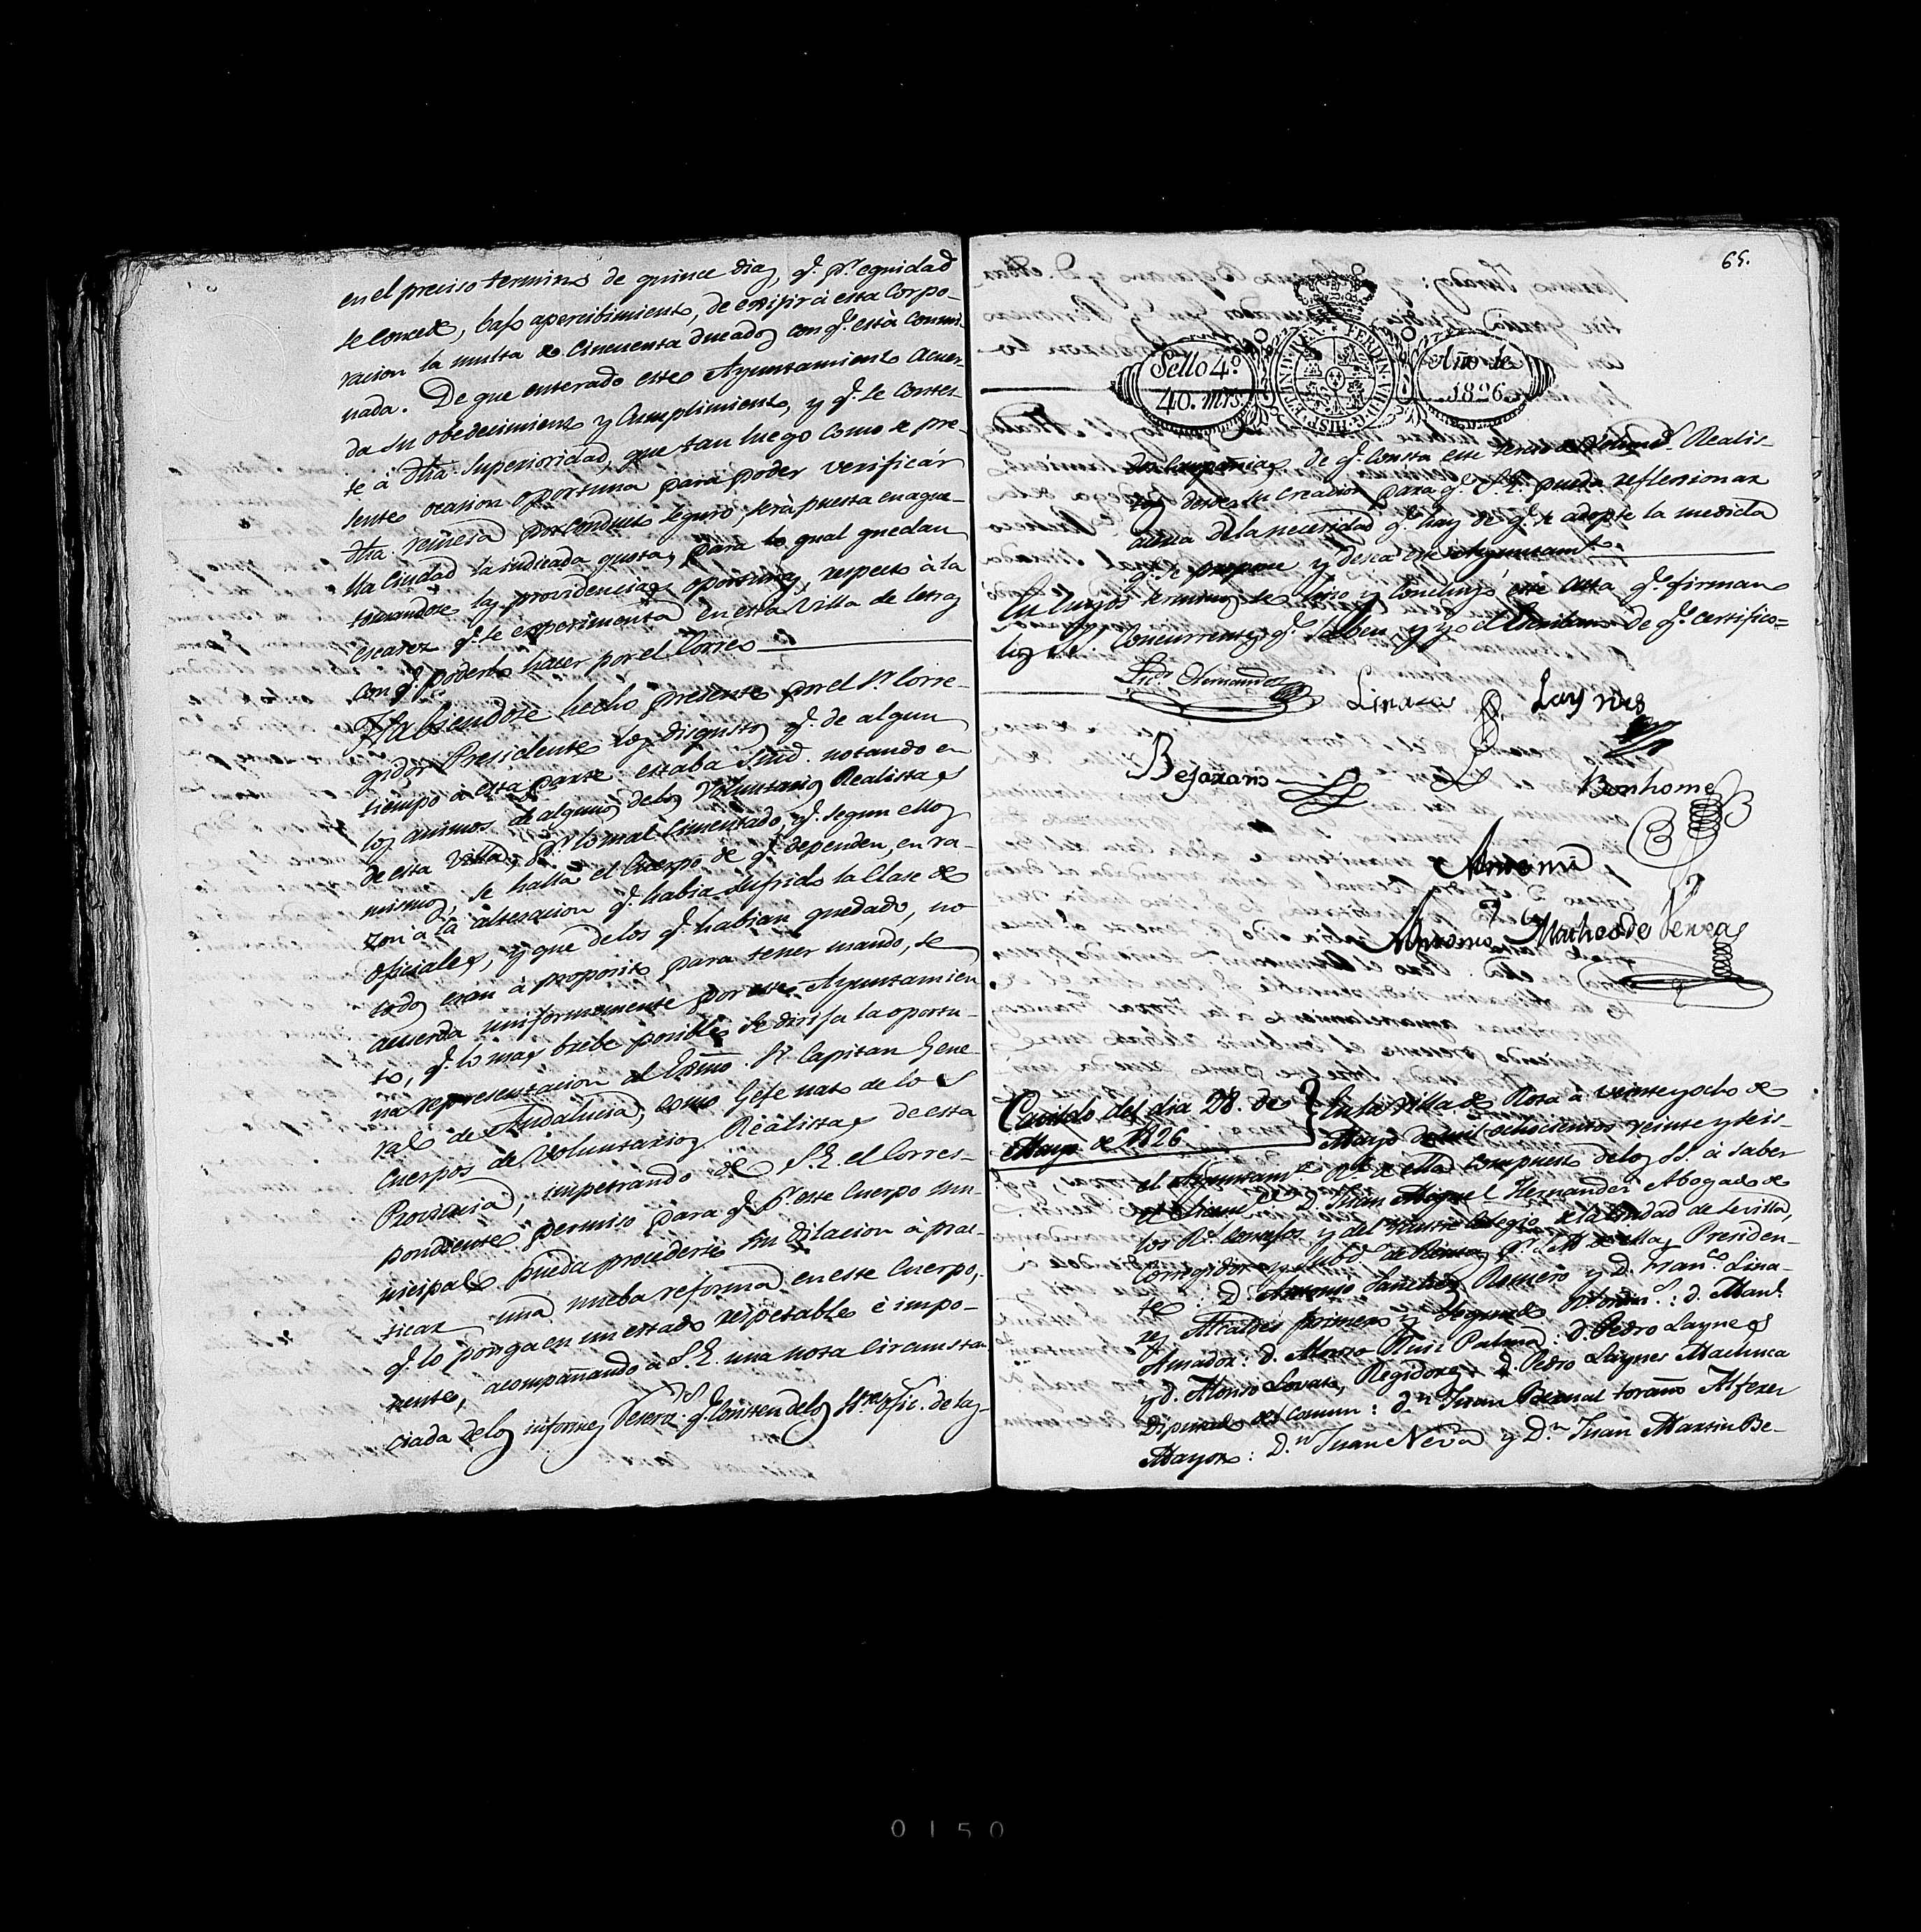 en el preciso termino de quince dias, q.e p.r equidad
se concede, bajo apercibimiento, de exijir à esta Corpo-
racion la multa de Cincuenta ducados con q.e està Conmi-
nada. De que enterado este Ayuntamiento acuer-
da su obedecimiento y Cumplimiento, y q.e se Contes-
te à dha. Superioridad, que tan luego como se pre-
sente ocasion oportuna para poder verificár
dha remesa por conducto seguro, será puesta en aque-
lla Ciudad la indicada quota, para lo qual quedan
tomandose las providencias oportunas, respecto à la
escasez q.e se experimenta en esta Villa de letras
con q.e poderlo hacer por el Correo
Habiendose hecho presente por el S.r Corre-
gidor Presidente los disgustos q.e de algun
tiempo à esta parte estaba Smd. notando en
los animos de algunos de los Voluntarios Realistas
de esta Villa, p.r lo mal Cimentado, q.e segun ellos
mismos, se halla el Cuerpo de q.e dependen, en ra-
zon à la alteracion q.e habia sufrido la Clase de
oficiales, y que de los q.e habian quedado, no
todos eran à proposito para tener mando, se
acuerda uniformemente por este Ayuntamien
to, q.e lo mas brebe posible se dirija la oportu-
na representacion al Exmo. S.r Capitan Gene-
ral de Andalucia, como Gefe nato de los
Cuerpos de Voluntarios Realistas de esta
Provincia, impetrando de S.E. el Corres-
pondiente permiso para q.e p.r este Cuerpo mu-
nicipal pueda procederse sin dilacion à prac-
ticar una nueba reforma en este Cuerpo,
q.e lo ponga en un estado respetable è impo-
nente, acompañando à S.E. una nota Circunstan
ciada de los informes q.e consten de los ofic. de las
65.
Sello 4.º
40. mrs.
FERDIN. VII D. G. HISP. ET IND. REX
Año de
1826
Compañias de q.e Consta este tercio Realis-
tas desde su creacion para q.e S.E. pueda reflexionar
acerca de la necesidad q.e hay de q.e se adopte la medida
q.e se propone y desea este Ayuntam.to
En cuyos terminos se cerro y Concluyó esta acta q.e firman
los SS. Concurrentes q.e saben y yo el Escribano de q.e certifico=
Lic.do Hernandez
Linares
Laynes
Bejarano
Bonhome
Ante mi
Antonio Matheos de Venegas
Cavildo del dia 28. de
Mayo de 1826
En la Villa de Rota à veinte y ocho de
Mayo de mil ochocientos veinte y seis-
el Ayuntam.to de ella compuesto de los SS. à saber
D. Juan Miguel Hernandez Abogado de
los R.s Consejos y del Ilustre Colegio de la Ciudad de Sevilla,
Corregidor y Subd.o de Rentas p.r S.M. de ella, Presiden-
te: D. Antonio Sanchez Romero y D. Fran.co Lina-
res Alcaldes primero y Segundo: D. Man.l
Amador: D. Alonso Ruiz Palma: D. Pedro Laynes
y D. Alonso Lovato, Regidores: D. Pedro Laynes Machuca
Diputado del Comun: D.n Juan Bernal toraño Alferez
Mayor: D.n Juan Neva y D.n Juan Martin Be-
0150